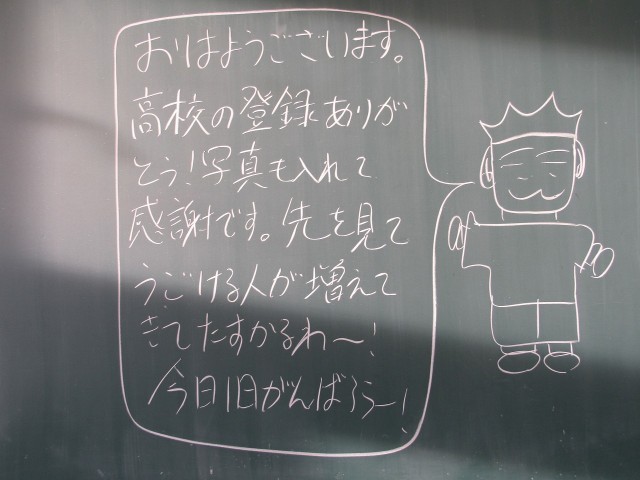 おはようございます。
高校の登録ありが
とう!写真も入れて
感謝です。先を見て
うごける人が増えて
きてたすかるわ〜!
今日1日がんばろう一!